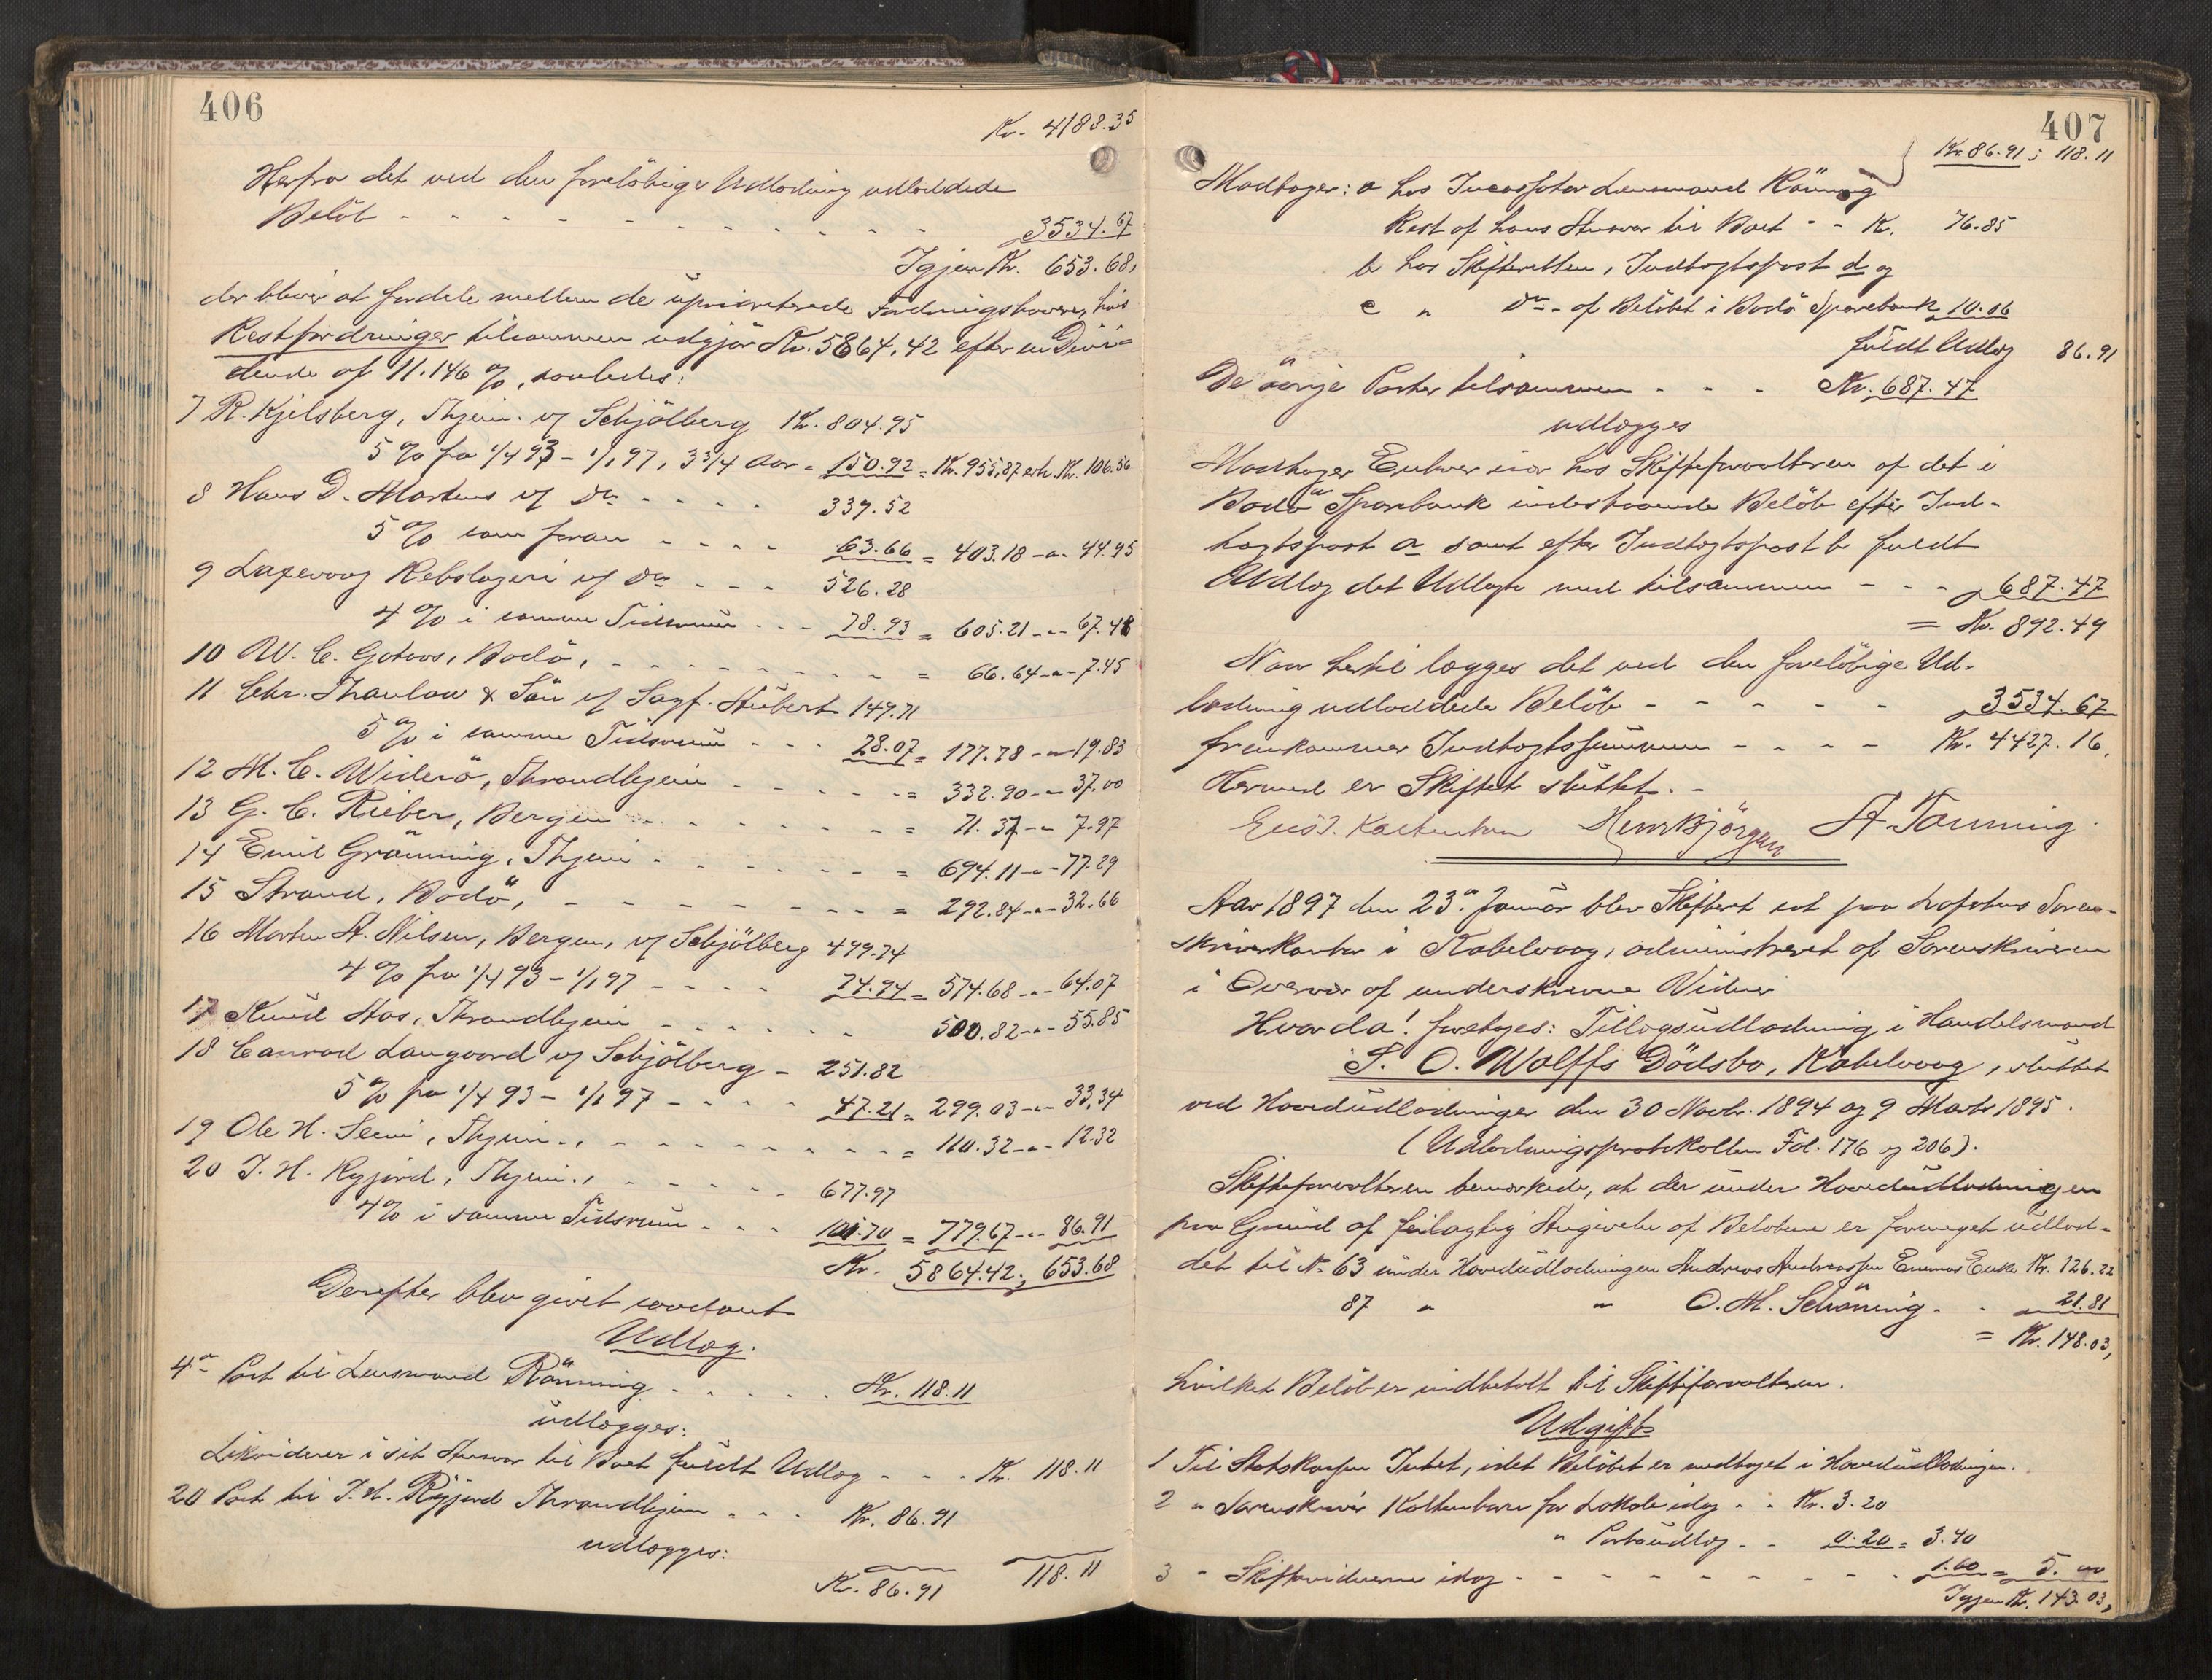 406
Kr. 4188.35
Herfra det ved den foreløbige Udlodning udloddede
Beløb - - - - - - - - - - 3534.67
Igjen Kr. 653.68,
der bliver at fordele mellem de uprioriterede Fordringshavere, hvis
Restfordringer tilsammen udgjør Kr. 5864.42 efter en Divi-
dende af 11.146 %, saaledes:
7 R. Kjelsberg, Thjem. v/ Schjölberg Kr. 804.95
5 % fra 1/4 93 - 1/1 97, 3 3/4 Aar = 150.92 = Kr. 955.87 erh. Kr. 106.56
8 Hans D. Martens v/ Do - - - - 339.52
5 % som foran - - - - 63.66 = 403.18 -"- 44.95
9 Laxevaag Rebslageri v/ Do - - - 526.28
4 % i samme Tidsrum - - - 78.93 = 605.21 -"- 67.48
10 W. C. Gotaas, Bodö, - - - - - - - = 66.64 -"- 7.45
11 Chr. Thaulow & Sön v/ Sagf. Hübert 149.71
5 % i samme Tidsrum - - - 28.07 = 177.78 -"- 19.83
12 M. C. Widerö, Throndhjem - - - - - = 332.90 -"- 37.00
13 G. C. Rieber, Bergen - - - - - - = 71.37 -"- 7.97
14 Emil Gränning, Thjem - - - - - = 694.11 -"- 77.29
15 Strand, Bodö, - - - - - - - = 292.84 -"- 32.66
16 Morten A. Nilsen, Bergen, v/ Schjölberg 499.74
4 % fra 1/4 93 - 1/1 97 - - - - 74.94 = 574.68 -"- 64.07
17 Knud Aas, Throndhjem - - - - - - 500.82 -"- 55.85
18 Conrad Langaard v/ Schjölberg - 251.82
5 % fra 1/4 93 - 1/1 97 - - - - 47.21 = 299.03 -"- 33.34
19 Ole H. , Thjem., - - - - - - - = 110.32 -"- 12.32
20 J. H. Ryjord, Thjem., - - - - - 677.97
4 % i samme Tidsrum - - - 101.70 = 779.67 -"- 86.91
Kr. 5864.42; 653.68
Derefter blev givet saadant
Udlæg.
4de Post til Lensmand Rönning - - - - - Kr. 118.11
udlægges:
Likviderer i sit Ansvar til Boet fuldt Udlæg - - - Kr. 118.11
20 Post til J. H. Ryjord Throndhjem - - - Kr. 86.91
udlægges:
Kr. 86.91 118.11
407
Kr. 86.91; 118.11
Modtager: a hos Incassator Lensmand Rönning
Rest af hans Ansvar til Boet - - Kr. 76.85
b hos Skifteretten, Indtægtspost d og
e " Do - af Beløbet i Bodö Sparebank 10.06
fuldt Udlæg 86.91
De øvrige Poster tilsammen - - - Kr. 687.47
udlægges
Modtager Enhver især hos Skifteforvalteren af det i
Bodö Sparebank indestaaende Beløb efter Ind-
tægtspost a samt efter Indtægtspost b fuldt
Udlæg det Udlagte med tilsammen - - - 687.47
= Kr. 892.49
Naar hertil lægges det ved den foreløbige Ud-
lodning udloddede Beløb - - - - - 3534.67
fremkommer Indtægtssummen - - - - Kr. 4427.16.
Hermed er Skiftet sluttet. -
Kaltenborn Henr Björgan A. Tönning.
Aar 1897 den 23de Januar blev Skifteret sat paa Lofotens Soren-
skriverkontor i Kabelvaag, administreret af Sorenskriveren
i Overvær af underskrevne Vidner
Hvorda! foretoges: Tillægsudlodning i Handelsmand
S. O. Wolffs Dödsbo, Kabelvaag, sluttet
ved Hovedudlodninger den 30 Novbr. 1894 og 9 Marts 1895.
(Udlodningsprotokollen Fol. 176 og 206).
Skifteforvalteren bemærkede, at der under Hovedudlodningen
paa Grund af feilagtig Angivelse af Beløbene er formeget udlod-
det til No 63 under Hovedudlodningen Andreas Andreassen Enke Kr. 126.22
87 " " O. M. Schöning - - 21.81
= Kr. 148.03,
hvilket Beløb er indbetalt til Skifteforvalteren.
Udgift
1 Til Statskassen Intet, idet Beløbet er medtaget i Hovedudlodningen.
2 " Sorenskriver Kaltenborn for Lokale idag - - Kr. 3.20
" Portoudlæg - - 0.20 = 3.40
3 " Skiftevidnerne idag - - - - - - - - 1.60 = 5.00
Igjen Kr. 143.03,